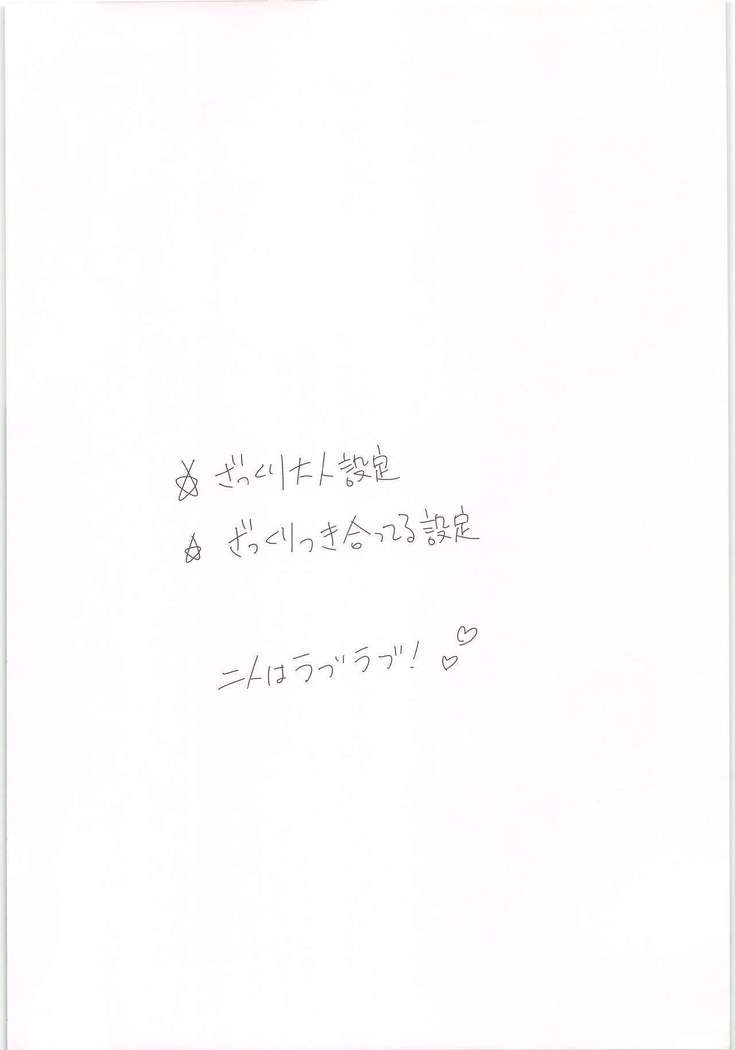 ☆ ざっくり大人設定
☆ ざっくりつき合ってる設定
二人はラブラブ! ♡♡